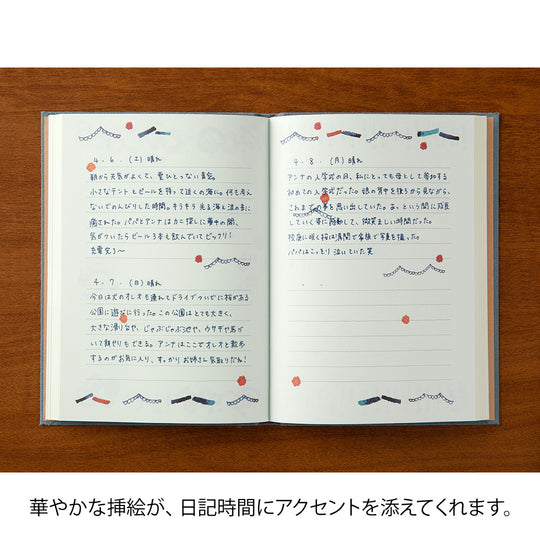 4.6.(土)晴れ
朝から天気がよくて、雲ひとつない青空。
小さなテントとビールを持って近くの海に。何も考え
ないでのんびりした時間。キラキラ光る海と波の音に
癒された。パパとアンナはカニ探しに夢中の間、
気がついたらビール3本も飲んでいてビックリ!
充電完了〜
4.7.(日)晴れ
今日は犬のオレオも連れてドライブついでに桜がある
公園に遊びに行った。この公園はとても大きく、
大きな滑り台や、じゃぶじゃぶ池や、ウサギや馬が
いて餌やりもできる。アンナはここでオレオと散歩
するのがお気に入り、すっかりお姉さん気取りだね!
4.8.(月)晴れ
アンナの入学式の日、私にとっても母として参加する
初めての入学式だった。娘の背中を後から見ながら、
これまでの事を思い出していた。あっという間に成長
していく姿に感動して、微笑ましい時間だった。
校庭に咲く桜は満開で家族で写真を撮った。
パパはこっそり泣いていた笑
華やかな挿絵が、日記時間にアクセントを添えてくれます。